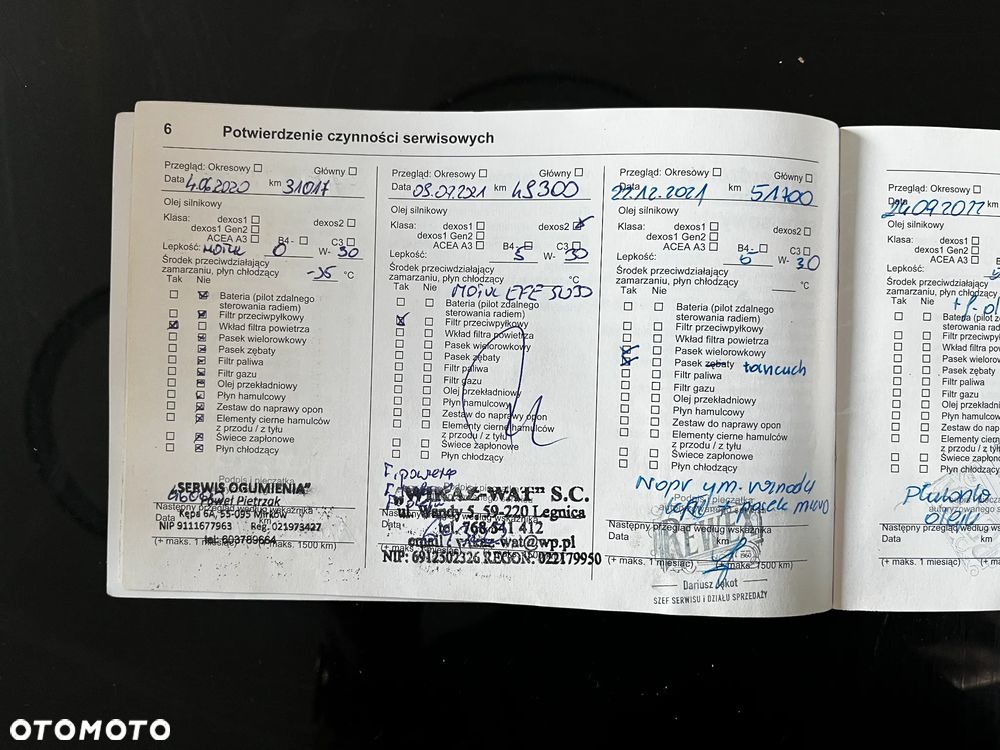 6 Potwierdzenie czynności serwisowych
Przegląd: Okresowy Główny
Data 4.06.2020 km 31017
Olej silnikowy
Klasa: dexos1 dexos2
dexos1 Gen2
ACEA A3 B4 - C3
Lepkość: Motul 0 W- 30
Środek przeciwdziałający
zamarzaniu, płyn chłodzący -35 °C
Tak Nie
Bateria (pilot zdalnego
sterowania radiem)
Filtr przeciwpyłkowy
Wkład filtra powietrza
Pasek wielorowkowy
Pasek zębaty
Filtr paliwa
Filtr gazu
Olej przekładniowy
Płyn hamulcowy
Zestaw do naprawy opon
Elementy cierne hamulców
z przodu / z tyłu
Świece zapłonowe
Płyn chłodzący
Podpis i pieczątka
"SERWIS OGUMIENIA"
Paweł Pietrzak
Następny przegląd według wskaźnika
Kępa 6A, 55-095 Mirków
Data km
NIP 9111677963 Reg. 021973427
tel. 603789664
(+ maks. 1 miesiąc) (+ maks. 1500 km)
Przegląd: Okresowy Główny
Data 09.07.2021 km 49300
Olej silnikowy
Klasa: dexos1 dexos2
dexos1 Gen2
ACEA A3 B4 - C3
Lepkość: 5 W- 30
Środek przeciwdziałający
zamarzaniu, płyn chłodzący °C
Tak Nie Motul EFE 5W30
Bateria (pilot zdalnego
sterowania radiem)
Filtr przeciwpyłkowy
Wkład filtra powietrza
Pasek wielorowkowy
Pasek zębaty
Filtr paliwa
Filtr gazu
Olej przekładniowy
Płyn hamulcowy
Zestaw do naprawy opon
Elementy cierne hamulców
z przodu / z tyłu
Świece zapłonowe
Płyn chłodzący
"WIKAZ-WAT" S.C.
ul. Wandy 5, 59-220 Legnica
tel. 768 541 412
email: wikaz-wat@wp.pl
NIP: 6912502326 REGON: 022179950
Przegląd: Okresowy Główny
Data 22.12.2021 km 51700
Olej silnikowy
Klasa: dexos1 dexos2
dexos1 Gen2
ACEA A3 B4 - C3
Lepkość: W- 30
Środek przeciwdziałający
zamarzaniu, płyn chłodzący °C
Tak Nie
Bateria (pilot zdalnego
sterowania radiem)
Filtr przeciwpyłkowy
Wkład filtra powietrza
Pasek wielorowkowy
Pasek zębaty łańcuch
Filtr paliwa
Filtr gazu
Olej przekładniowy
Płyn hamulcowy
Zestaw do naprawy opon
Elementy cierne hamulców
z przodu / z tyłu
Świece zapłonowe
Płyn chłodzący
Podpis i pieczątka
Następny przegląd według wskaźnika
Data km
(+ maks. 1 miesiąc) (+ maks. 1500 km)
Dariusz Łękot
SZEF SERWISU I DZIAŁU SPRZEDAŻY
Przegląd: Okresowy
Data 24.09.2022 km
Olej silnikowy
Klasa: dexos1
dexos1 Gen2
ACEA A3
Lepkość:
Środek przeciwdziałający
zamarzaniu, płyn chłodzący
Tak Nie
Bateria (pilot z
sterowania rad
Filtr przeciwpył
Wkład filtra pow
Pasek wielorow
Pasek zębaty
Filtr paliwa
Filtr gazu
Olej przekładnio
Płyn hamulcowy
Zestaw do napra
Elementy ciern
z przodu / z tyłu
Świece zapłono
Płyn chłodzący
Następny przegląd według wskaźnika
Data km
(+ maks. 1 miesiąc) (+
OTOMOTO